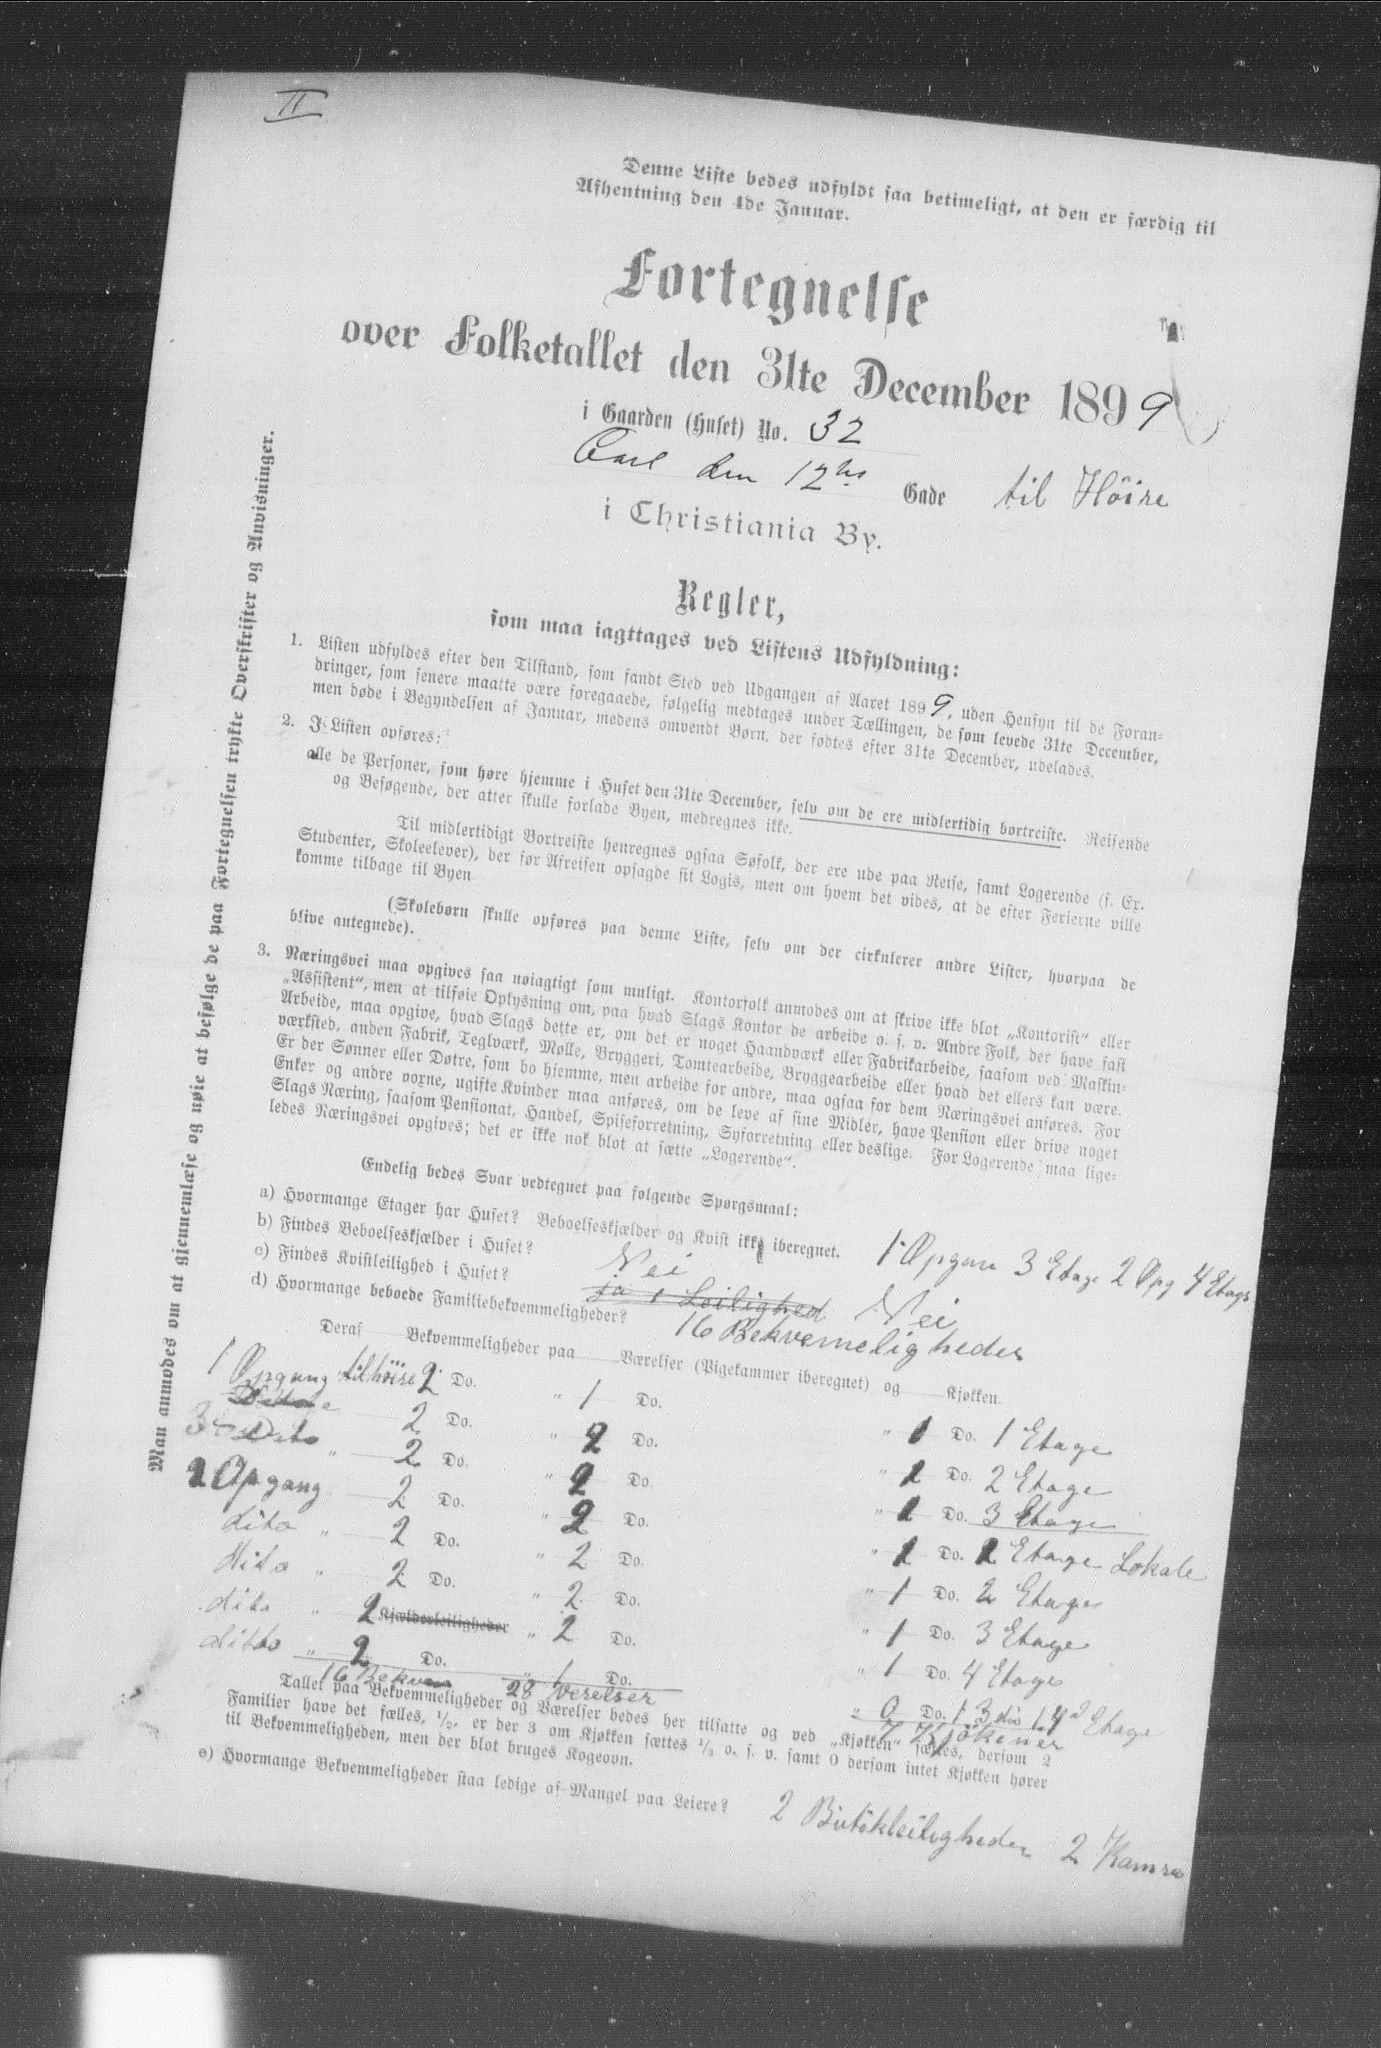 II
Denne Liste bedes udfyldt saa betimeligt, at den er færdig til
Afhentning den 4de Januar.
Fortegnelse
over Folketallet den 31te December 1899
i Gaarden (Huset) No. 32
Carl den 12tes Gade til Høire
i Christiania By.
Regler,
som maa iagttages ved Listens Udfyldning:
1. Listen udfyldes efter den Tilstand, som fandt Sted ved Udgangen af Aaret 1899, uden Hensyn til de Foran-
dringer, som senere maatte være foregaaede, følgelig medtages under Tællingen, de som levede 31te December,
men døde i Begyndelsen af Januar, medens omvendt Børn, der fødtes efter 31te December, udelades.
2. I Listen opføres:
alle de Personer, som høre hjemme i Huset den 31te December, selv om de ere midlertidig bortreiste. Reisende
og Besøgende, der atter skulle forlade Byen, medregnes ikke.
Til midlertidigt Bortreiste henregnes ogsaa Søfolk, der ere ude paa Reise, samt Logerende (f. Ex.
Studenter, Skoleelever), der før Afreisen opsagde sit Logis, men om hvem det vides, at de efter Ferierne ville
komme tilbage til Byen
(Skolebørn skulle opføres paa denne Liste, selv om der cirkulerer andre Lister, hvorpaa de
blive antegnede).
3. Næringsvei maa opgives saa nøiagtigt som muligt. Kontorfolk anmodes om at skrive ikke blot „Kontorist“ eller
„Assistent“, men at tilføie Oplysning om, paa hvad Slags Kontor de arbeide o. s. v. Andre Folk, der have fast
Arbeide, maa opgive, hvad Slags dette er, om det er noget Haandværk eller Fabrikarbeide, saasom ved Maskin-
værksted, anden Fabrik, Teglværk, Mølle, Bryggeri, Tomtearbeide, Bryggearbeide eller hvad det ellers kan være.
Er der Sønner eller Døtre, som bo hjemme, men arbeide for andre, maa ogsaa for dem Næringsvei anføres. For
Enker og andre voxne, ugifte Kvinder maa anføres, om de leve af sine Midler, have Pension eller drive noget
Slags Næring, saasom Pensionat, Handel, Spiseforretning, Syforretning eller deslige. For Logerende maa lige-
ledes Næringsvei opgives; det er ikke nok blot at sætte „Logerende“.
Endelig bedes Svar vedtegnet paa følgende Spørgsmaal:
a) Hvormange Etager har Huset? Beboelseskjælder og Kvist ikke iberegnet. 1 Opgan 3 Etage 2 Opg 4 Etags
b) Findes Beboelseskjælder i Huset? Nei
c) Findes Kvistleilighed i Huset? ja 1 Leilighed Nei
d) Hvormange beboede Familiebekvemmeligheder? 16 Bekvemeligheder
Deraf Bekvemmeligheder paa Værelser (Pigekammer iberegnet) og Kjøkken.
1 Opgang til høire 2 Do. „ 1 Do. „ 1 Do. 1 Etage
2 Do. „ 2 Do. „ 1 Do. 2 Etage
3 Dito „ 2 Do. „ 2 Do. „ 1 Do. 3 Etage
2 Opgang 2 Do. „ 2 Do. „ 1 Do. 1 Etage Lokale
dito „ 2 Do. „ 2 Do. „ 1 Do. 2 Etage
Dito „ 2 Do. „ 2 Do. „ 1 Do. 3 Etage
dito „ 2 Kjælderleiligheder „ 2 Do. „ 1 Do. 4 Etage
ditto „ 2 Do. „ 1 Do. „ 0 Do. 1 3 die 1 4 d Etage
16 Bekvem 28 Verelser 7 Kjøkener
Tallet paa Bekvemmeligheder og Værelser bedes her tilsatte og ved „Kjøkken“ sættes, dersom 2
Familier have det fælles, 1/2, er der 3 om Kjøkken sættes 1/3 o. s. v. samt 0 dersom intet Kjøkken hører
til Bekvemmeligheden, men der blot bruges Kogeovn.
e) Hvormange Bekvemmeligheder staa ledige af Mangel paa Leiere? 2 Butikleiligheder 2 Kamre
Man anmodes om at gjennemlæse og nøie at befølge de paa Fortegnelsen trykte Overskrifter og Anvisninger.